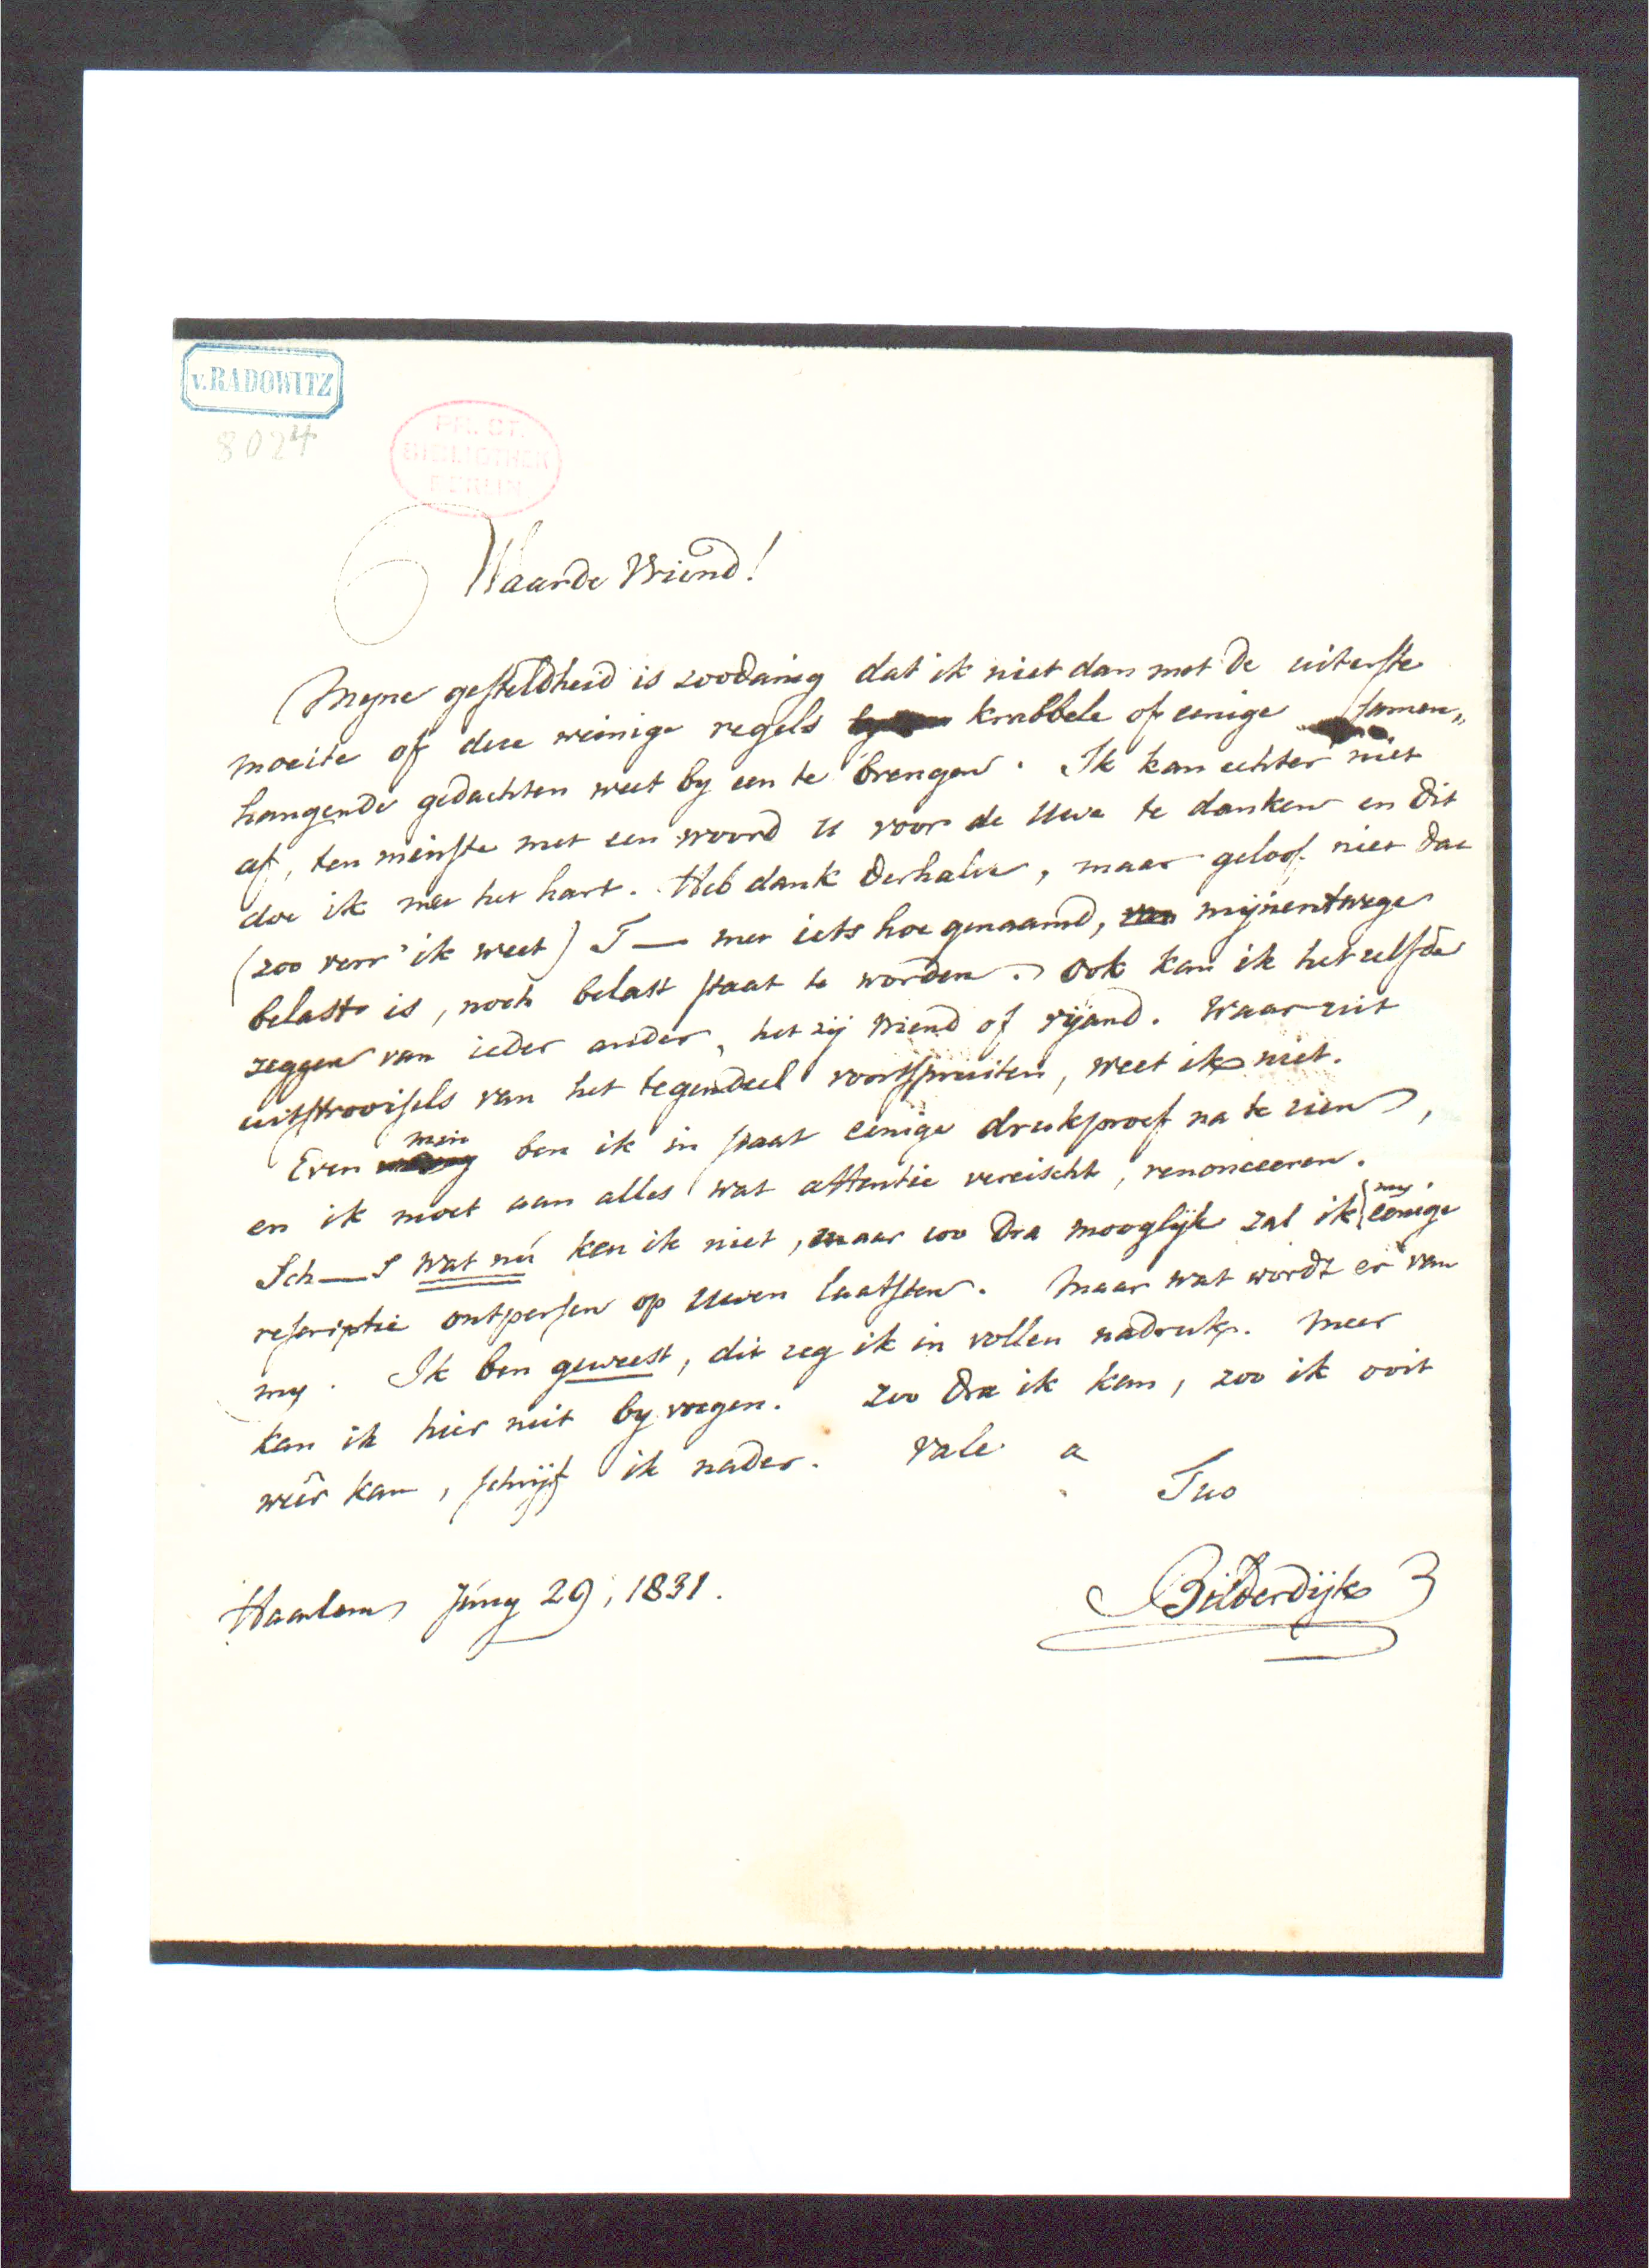 v. RADOWITZ
8024
PR. ST.
BIBLIOTHEK
BERLIN
Waarde Vriend!
Mijne gesteldheid is zoodanig dat ik niet dan met de uiterste
moeite of deze weinige regels krabbele of eenige samen„
hangende gedachten weet by een te brengen. Ik kan echter niet
af, ten minste met een woord U voor de Uwe te danken en dit
doe ik met het hart. Heb dank derhalve, maar geloof niet dat
(zoo verr' ik weet) T— met iets hoe genaamd, mijnentwege
belast is, noch belast staat te worden. Ook kan ik hetzelfde
zeggen van ieder ander, het zij vriend of vijand. Waar uit
uitstrooisels van het tegendeel voortspruiten, weet ik niet.
Even min ben ik in staat eenige drukproef na te zien,
en ik moet aan alles wat attentie vereischt, renonceeren.
Sch—s wat nú ken ik niet, maar zoo dra mooglijk zal ik my eenige
rescriptie ontpersen op Uwen laatsten. Maar wat wordt er van
my. Ik ben geweest, dit zeg ik in vollen nadruk. Meer
kan ik hier niet by voegen. Zoo dra ik kan, zoo ik ooit
weêr kan, schrijf ik nader. Vale a
Tuo
Haarlem Juny 29, 1831.
Bilderdijk